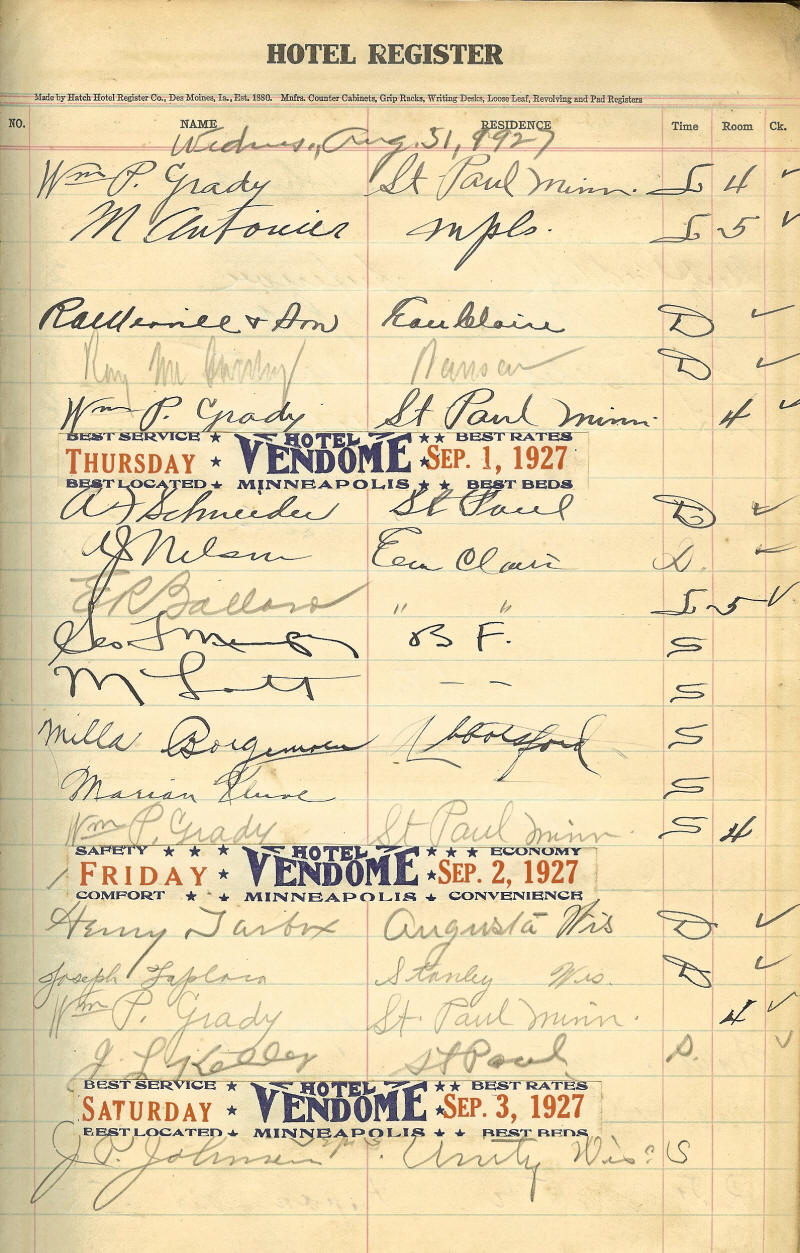 HOTEL REGISTER
Made by Hatch Hotel Register Co., Des Moines, Ia., Est. 1880. Mnfrs. Counter Cabinets, Grip Racks, Writing Desks, Loose Leaf, Revolving and Pad Registers
NO. NAME RESIDENCE Time Room Ck.
Wednes., Aug. 31, 1927
Wm P. Grady St Paul Minn. L 4 ✓
M Antonier mpls. L 5 ✓
& Son Eau Claire D ✓
Ray Mc D ✓
Wm P. Grady St Paul Minn. 4 ✓
BEST SERVICE ★ HOTEL ★★ BEST RATES
THURSDAY ★ VENDOME ★ SEP. 1, 1927
BEST LOCATED ★ MINNEAPOLIS ★ ★ BEST BEDS
A J Schneider St Paul D ✓
A J Nelson Eau Clair D. ✓
E R Ballard " " L 5 ✓
Geo B F. S
M — — S
Milla Abbotsford S
Marian S
Wm P. Grady St Paul Minn. S 4
SAFETY ★ ★ ★ HOTEL ★ ★ ★ ECONOMY
FRIDAY ★ VENDOME ★ SEP. 2, 1927
COMFORT ★ ★ MINNEAPOLIS ★ CONVENIENCE
Henry Tarbox Augusta Wis D ✓
Joseph Stanley Wis. D ✓
Wm P. Grady St. Paul Minn. 4 ✓
J L Kelley St Paul D. ✓
BEST SERVICE ★ HOTEL ★★ BEST RATES
SATURDAY ★ VENDOME ★ SEP. 3, 1927
BEST LOCATED ★ MINNEAPOLIS ★ ★ BEST BEDS
J. P. Johnson Unity Wis. S